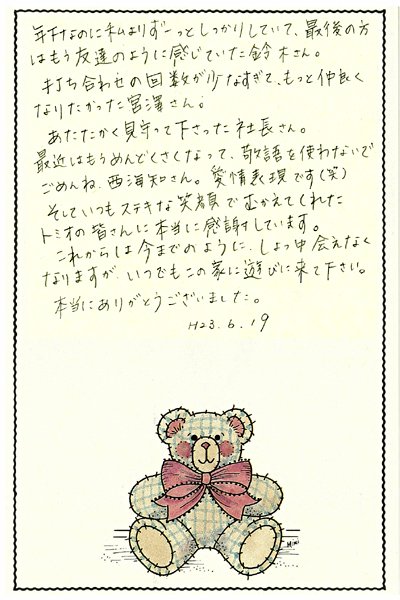 年下なのに私よりずーっとしっかりしていて、最後の方
はもう友達のように感じていた鈴木さん。
打ち合わせの回数が少なすぎて、もっと仲良く
なりたかった宮澤さん。
あたたかく見守って下さった社長さん。
最近はもうめんどくさくなって、敬語を使わないで
ごめんね、西海知さん。愛情表現です(笑)
そしていつもステキな笑顔でむかえてくれた
トミオの皆さんに本当に感謝しています。
これからは今までのように、しょっ中会えなく
なりますが、いつでもこの家に遊びに来て下さい。
本当にありがとうございました。
H23.6.19